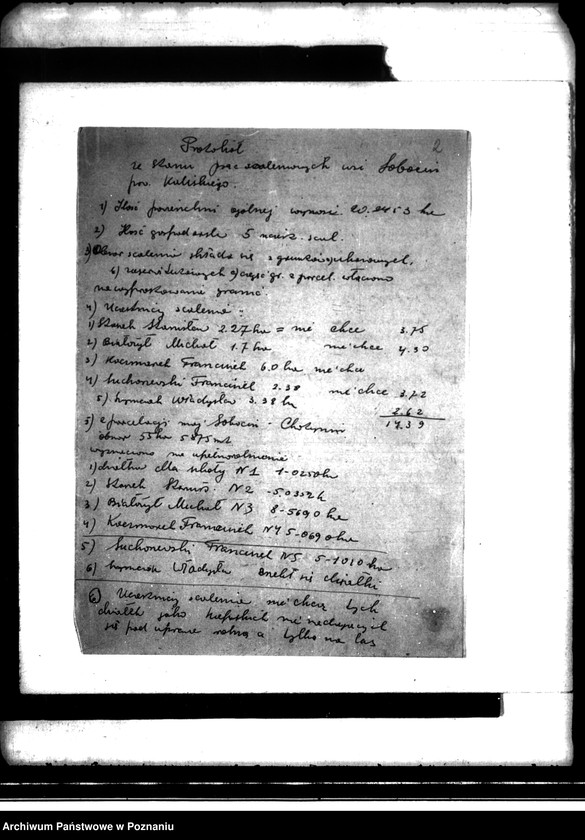 2
Protokół
ze stanu prac scaleniowych wsi Sobocin
pow. Kaliskiego.
1) Ilość powierzchni ogólnej wynosi 20.2453 ha
2) Ilość gospodarstw 5
3) Obszar scalenia składa się z gruntów
b) i część gr. z parcel. włączono
na wyprostowanie granic.
4) Uczestnicy scalenia:
1) Stanek Stanisław 2.27 ha = nie chce 3.75
2) Białożyt Michał 1.7 ha nie chce 4.30
3) Kaczmarek Franciszek 6.0 ha nie chce
4) Suchorzewski Franciszek 2.38 nie chce 3.72
5) Szymczak Władysław 3.38 ha 2.62
14.39
5) z parcelacji maj. Sobocin
obszar 55 ha 5875 mt
wyznaczono na upełnorolnienie
1) działka dla szkoły N1 1-0250 ha
2) Stanek N2 -5.0352 h
3) Białożyt Michał N3 8-5690 ha
4) Kaczmarek Franciszek N4 5-0690 ha
5) Suchorzewski Franciszek N5 5-1010 ha
6) Szymczak Władysław zrzekł się działki
6) Uczestnicy scalenia nie chcą tych
działek jako kiepskich nie nadających
się pod uprawę rolną a tylko na las
Archiwum Państwowe w Poznaniu